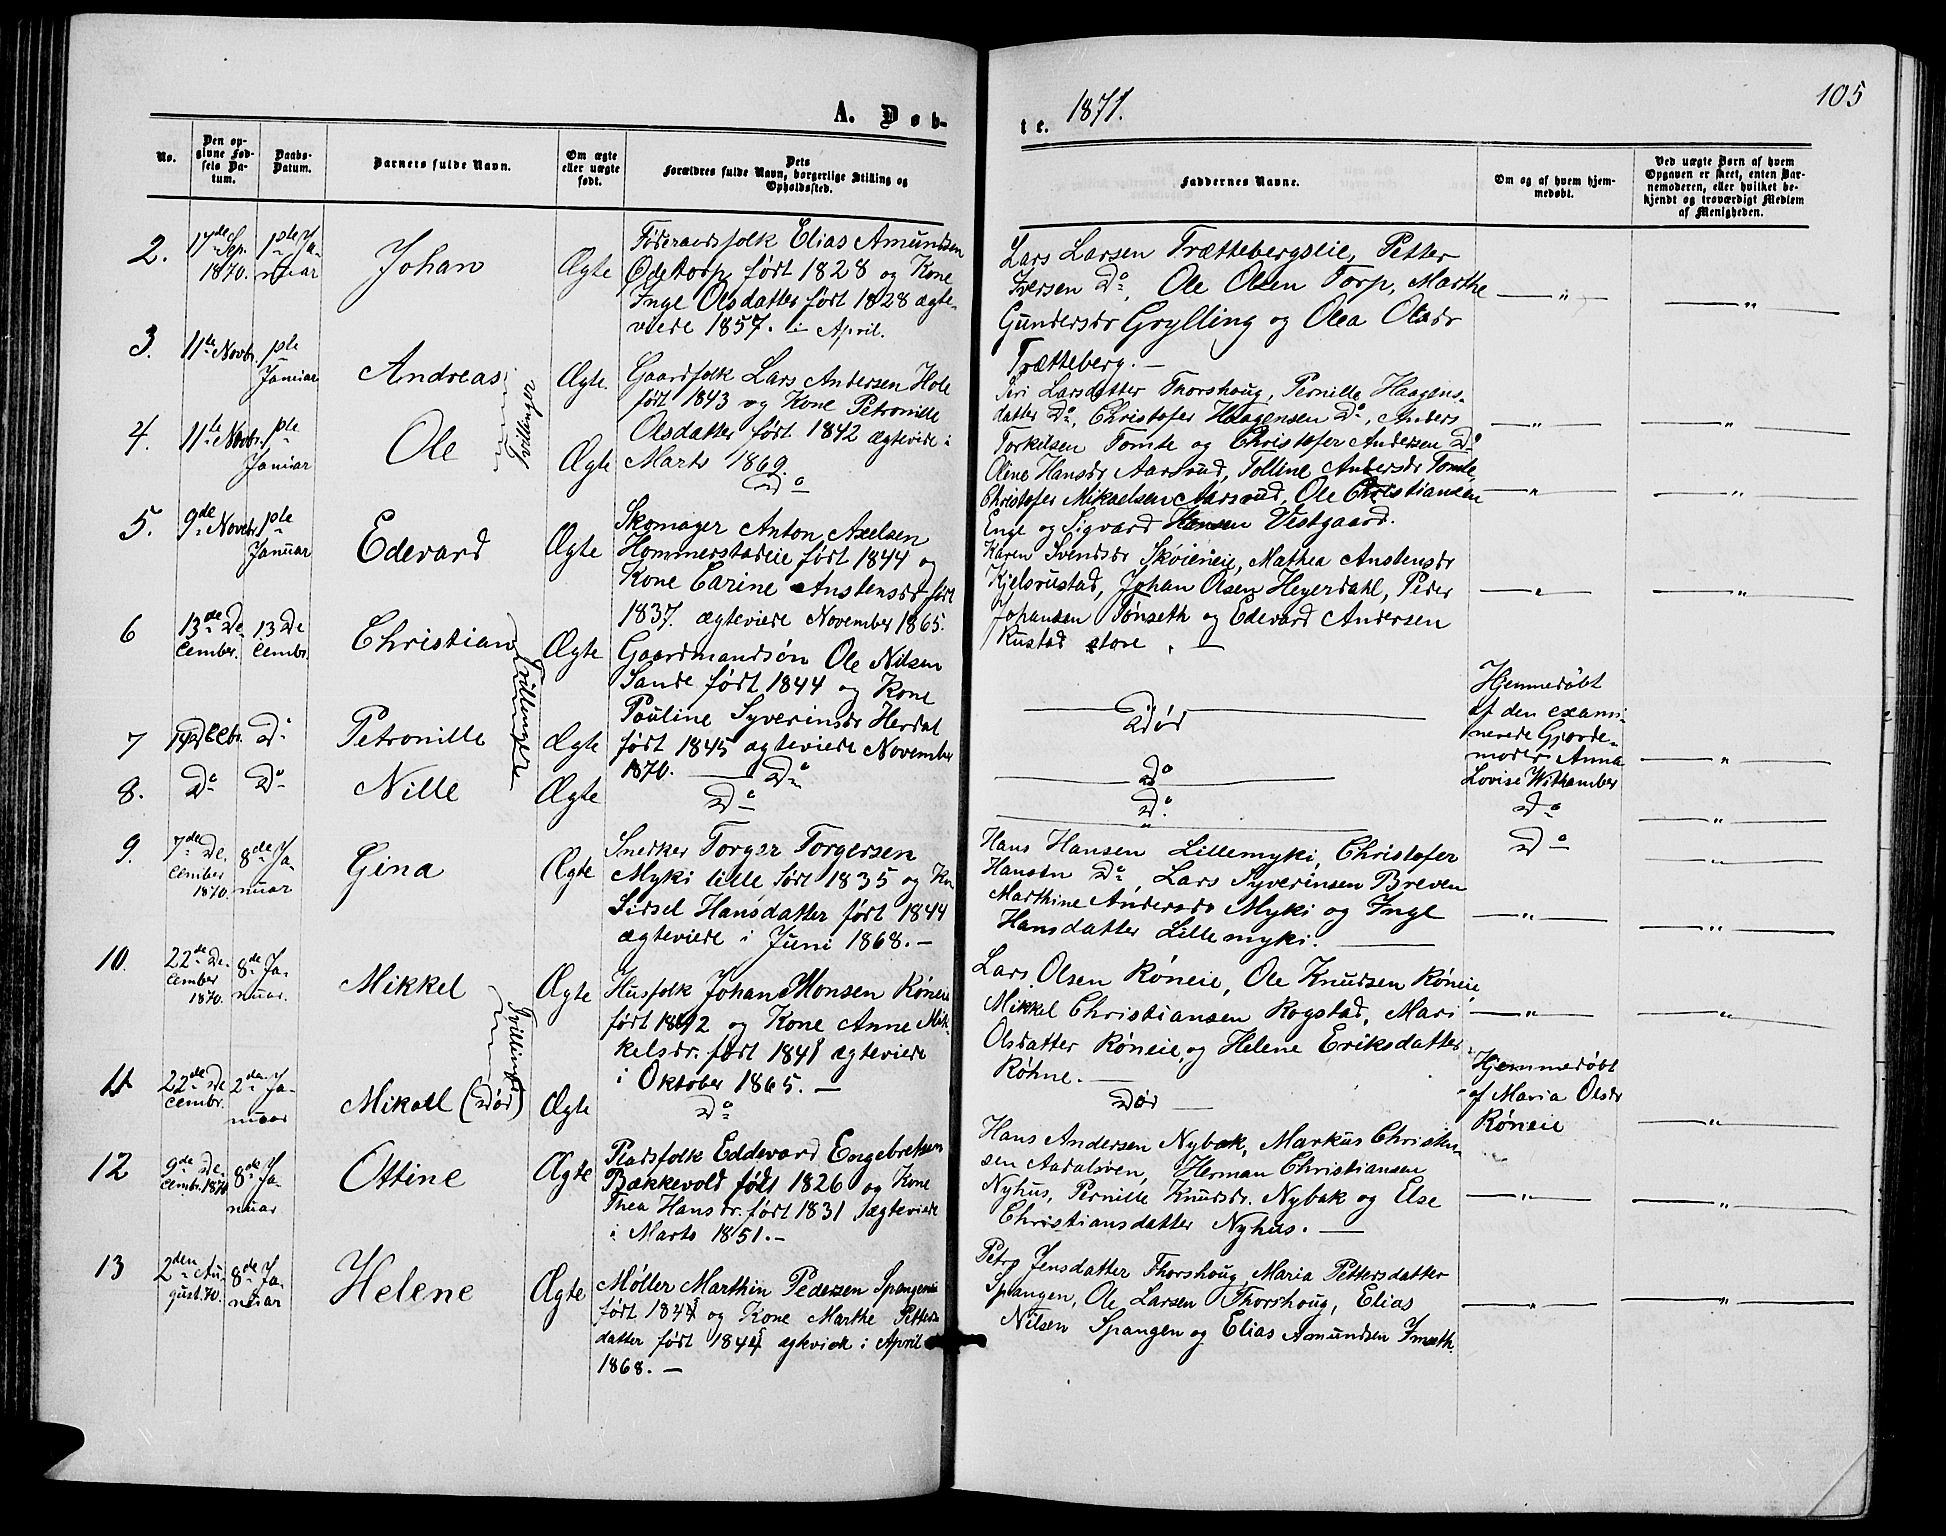 A. Døb-
te. 1871.
105
No.
Den op-
givne Fød-
sels Da-
tum.
Daabs-
Datum.
Barnets fulde Navn.
Om ægte
eller uægte
født.
Dets
Forældres fulde Navn, borgerlige Stilling og
Opholdssted.
Faddernes Navne.
Om og af hvem hjem-
medøbt.
Ved uægte Børn af hvem
Opgaven er skeet, enten Bar-
nemoderen, eller hvilket be-
kjendt og troværdigt Medlem
af Menigheden.
2.
17de Sep.
1870.
1ste Ja-
nuar
Johan
Ægte
Føderaadsfolk Elias Amundsen
Ødetorp født 1828 og Kone
Inge Olsdatter født 1828 ægte-
viede 1857. i April.
Lars Larsen Trættebergseie, Petter
Iversen Do, Ole Olsen Torp, Marthe
Gundersdr Grylling og Olea Olsdr
Trætteberg. —
— " —
— " —
3.
11te Novbr.
1ste
Januar
Andreas
Tvillinger
Ægte
Gaardfolk Lars Andersen Hole
født 1843 og Kone Petronille
Olsdatter født 1842 ægteviede i
Marts 1869.
Siri Larsdatter Thorshoug, Pernille Haagens-
datter Do, Christofer Haagensen Do, Anders
Torkelsen Tomte og Christofer Andersen Do
— " —
— " —
4.
11te Novbr.
1ste
Januar
Ole
Ægte
Do
Oline Hansdr Aarsrud, Tolline Andersdr Tomte,
Christofer Mikaelsen Aarsrud, Ole Christiansen
Enge og Sigvard Hansen Vestgaard.
— " —
— " —
5.
9de Novebr
1ste
Januar
Edevard
Ægte
Skomager Anton Axelsen
Hommerstadeie født 1844 og
Kone Carine Anstensdr født
1837. ægteviede November 1865.
Karen Svendsdr Skøieneie, Mathea Anstensdr
Kjelsrustad, Johan Olsen Heyerdahl, Peder
Johansen Tønseth og Edevard Andersen
Rustad store. —
— " —
— " —
6
13de De-
cember.
13 De
cembr.
Christian
Trillinger
Ægte
Gaardmandsøn Ole Nilsen
Sande født 1844 og Kone
Pauline Syverinsdr Herdal
født 1845 ægteviede November
1870. —
Død
Hjemmedøbt
af den exami-
nerede Gjorde-
moder Anna
Lovise Withamber
— " —
7
Do
Petronille
Ægte
Do
Do
Do
— " —
8.
Do
Do
Nille
Ægte
Do
Do
Do
— " —
9.
7de De-
cember
1870.
8de Ja-
nuar
Gina
Ægte
Snedker Torger Torgersen
Myki lille født 1835 og Ko
Sidsel Hansdatter født 1844
ægteviede i Juni 1868. —
Hans Hansen Lillemyki, Christofer
Hansen Do, Lars Syverinsen Breven
Marthine Andersdr Myki og Inge
Hansdatter Lillemyki. —
— " —
— " —
10.
22de De-
cember
1870.
8de Ja-
nuar.
Mikkel
Tvillinger
Ægte
Husfolk Johan Monsen Røneie
født 1842 og Kone Anne Mik-
kelsdr. født 1841 ægteviede
i Oktober 1865. —
Lars Olsen Røneie, Ole Knudsen Røneie,
Mikkel Christiansen Rogstad, Mari
Olsdatter Røneie, og Helene Eriksdatter
Røhne. —
— " —
— " —
11
22de De
cembr.
2den Ja-
nuar
Mikael (Død)
Ægte
Do
Død —
Hjemmedøbt
af Maria Olsdr
Røneie
— " —
12
9de De-
cembr. 1870
8de Ja-
nuar
Ottine
Ægte
Pladsfolk Eddevard Engebretsen
Bækkevold født 1826 og Kone
Thea Hansdr. født 1831 ægteviede
i Marts 1851. —
Hans Andersen Nybak, Markus Christian-
sen Aadalsven, Herman Christiansen
Nyhus, Pernille Knudsdr. Nybak og Else
Christiansdatter Nyhus. —
— " —
— " —
13
2den Au-
gust. 70.
8de Ja-
nuar
Helene
Ægte
Møller Marthin Pedersen Spangeneie
født 1844 og Kone Marthe Petters-
datter født 1844 ægteviede i April
1868. —
Petra Jensdatter Thorshoug, Maria Pettersdatter
Spangen, Ole Larsen Thorshoug, Elias
Nilsen Spangen og Elias Amundsen Smeth.
— " —
— " —